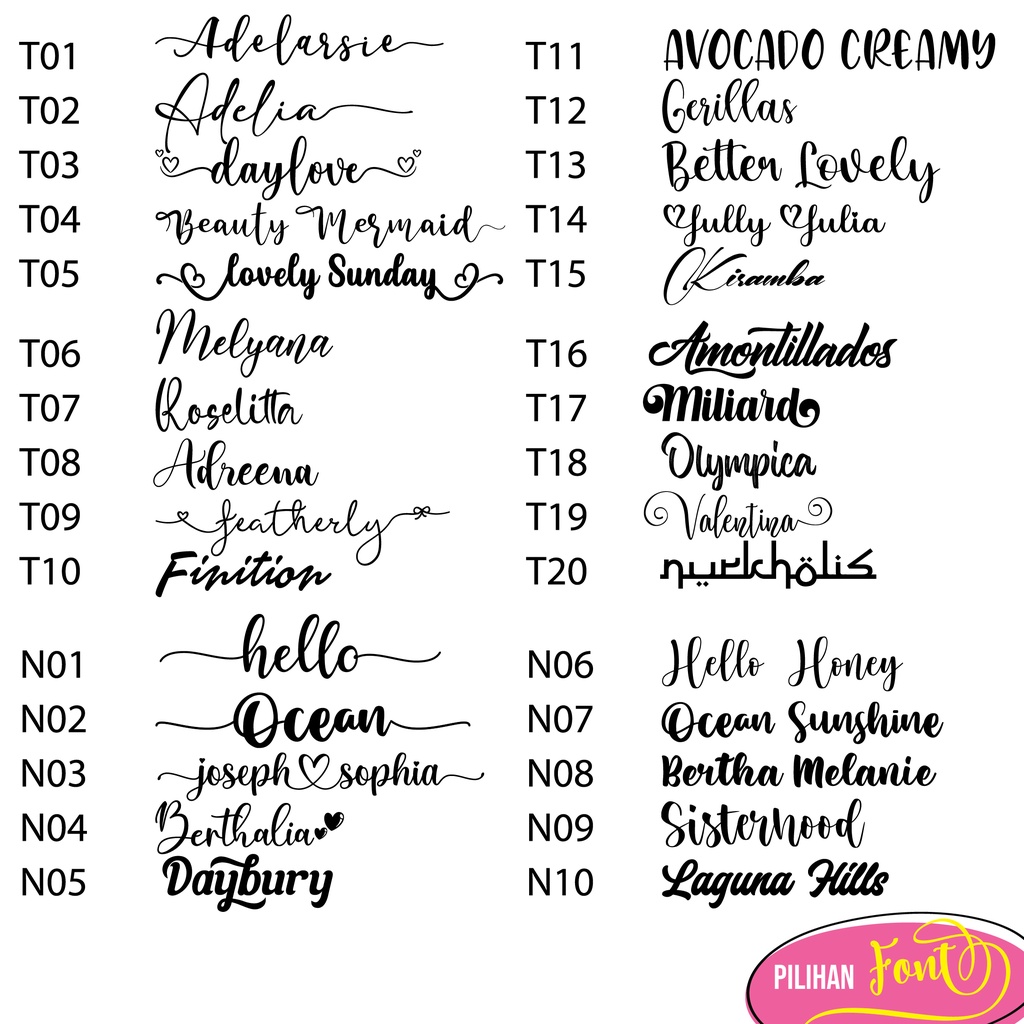 T01 Adelarsie
T02 Adelia
T03 daylove
T04 Beauty Mermaid
T05 lovely Sunday
T06 Melyana
T07 Roselitta
T08 Adreena
T09 featherly
T10 Finition
T11 AVOCADO CREAMY
T12 Gerillas
T13 Better Lovely
T14 Yully Yulia
T15 Kiramba
T16 Amontillados
T17 Miliard
T18 Olympica
T19 Valentina
T20 nurkholis
N01 hello
N02 Ocean
N03 joseph sophia
N04 Berthalia
N05 Daybury
N06 Hello Honey
N07 Ocean Sunshine
N08 Bertha Melanie
N09 Sisterhood
N10 Laguna Hills
PILIHAN Font